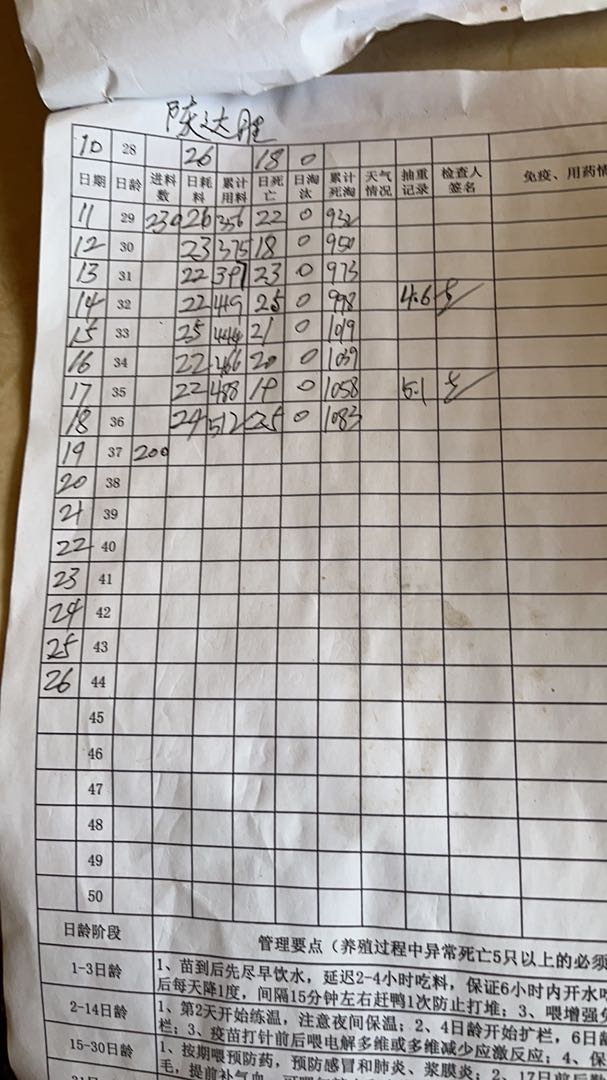 陈达胜
10 28 26 18 0
日期 日龄 进料数 日耗料 累计用料 日死亡 日淘汰 累计死淘 天气情况 抽重记录 检查人签名 免疫、用药情
11 29 230 26 356 22 0 932
12 30 23 375 18 0 950
13 31 22 397 23 0 973
14 32 22 419 25 0 998 4.6
15 33 25 444 21 0 1019
16 34 22 466 20 0 1039
17 35 22 488 19 0 1058 5.1
18 36 24 512 25 0 1083
19 37 200
20 38
21 39
22 40
23 41
24 42
25 43
26 44
45
46
47
48
49
50
日龄阶段 管理要点（养殖过程中异常死亡5只以上的必须
1-3日龄 1、苗到后先尽早饮水，延迟2-4小时吃料，保证6小时内开水吃
后每天降1度，间隔15分钟左右赶鸭1次防止打堆；3、喂增强免
2-14日龄 1、第2天开始练温，注意夜间保温；2、4日龄开始扩栏，6日龄
栏；3、疫苗打针前后喂电解多维或多维减少应激反应；4、保
15-30日龄 1、按期喂预防药，预防感冒和肺炎、浆膜炎；2、17日前后
毛，提前补气血